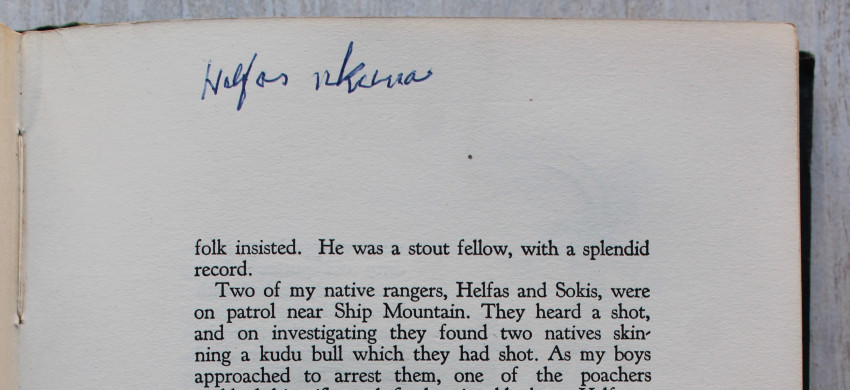 Helfas nkuna
folk insisted. He was a stout fellow, with a splendid
record.
Two of my native rangers, Helfas and Sokis, were
on patrol near Ship Mountain. They heard a shot,
and on investigating they found two natives skin-
ning a kudu bull which they had shot. As my boys
approached to arrest them, one of the poachers